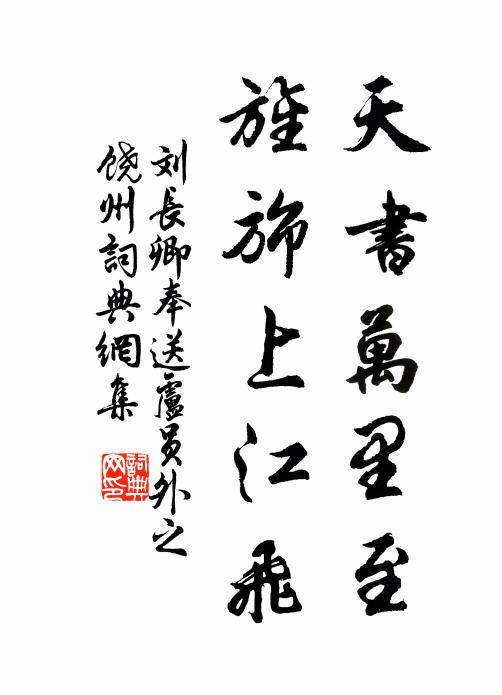 天書萬里至
旌旆上江飛
刘長卿奉送盧员外之
饶州詞典網集
詞典
网印